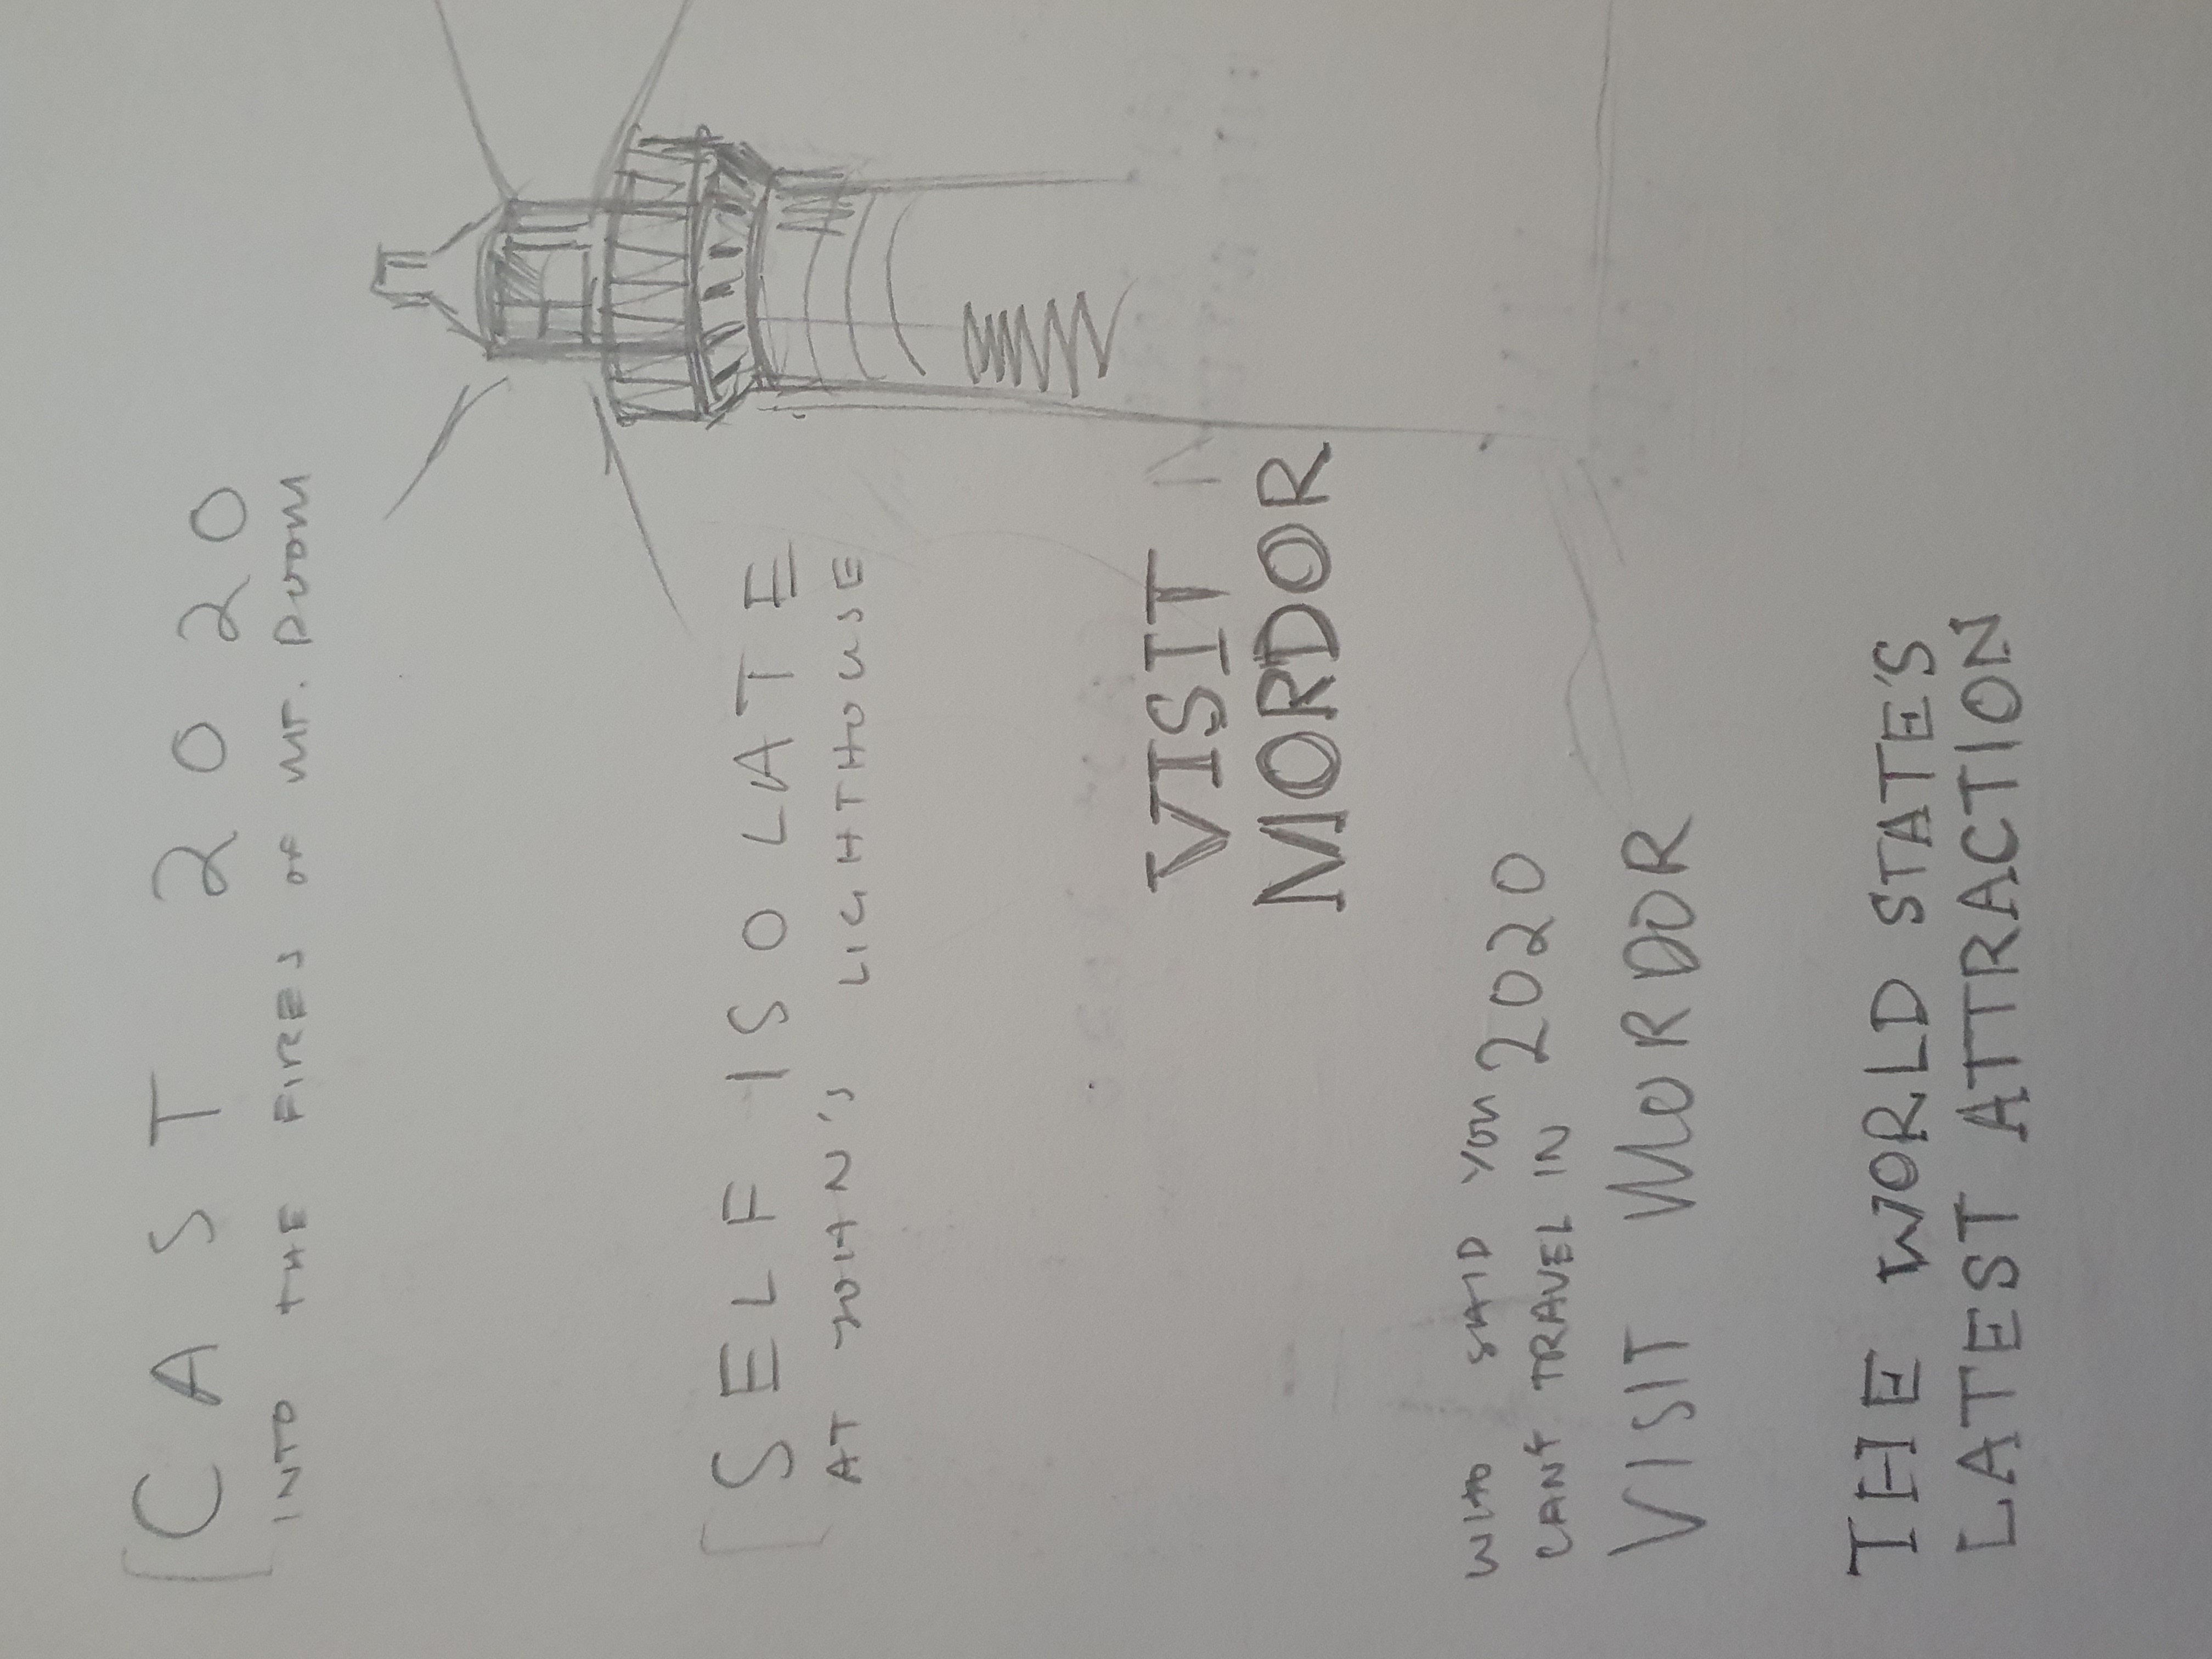 CAST 2020
INTO THE FIRES OF MT. DOOM
SELF ISOLATE
AT JOHN'S LIGHTHOUSE
VISIT
MORDOR
WHO SAID YOU
CANT TRAVEL IN 2020
VISIT MORDOR
THE WORLD STATE'S
LATEST ATTRACTION